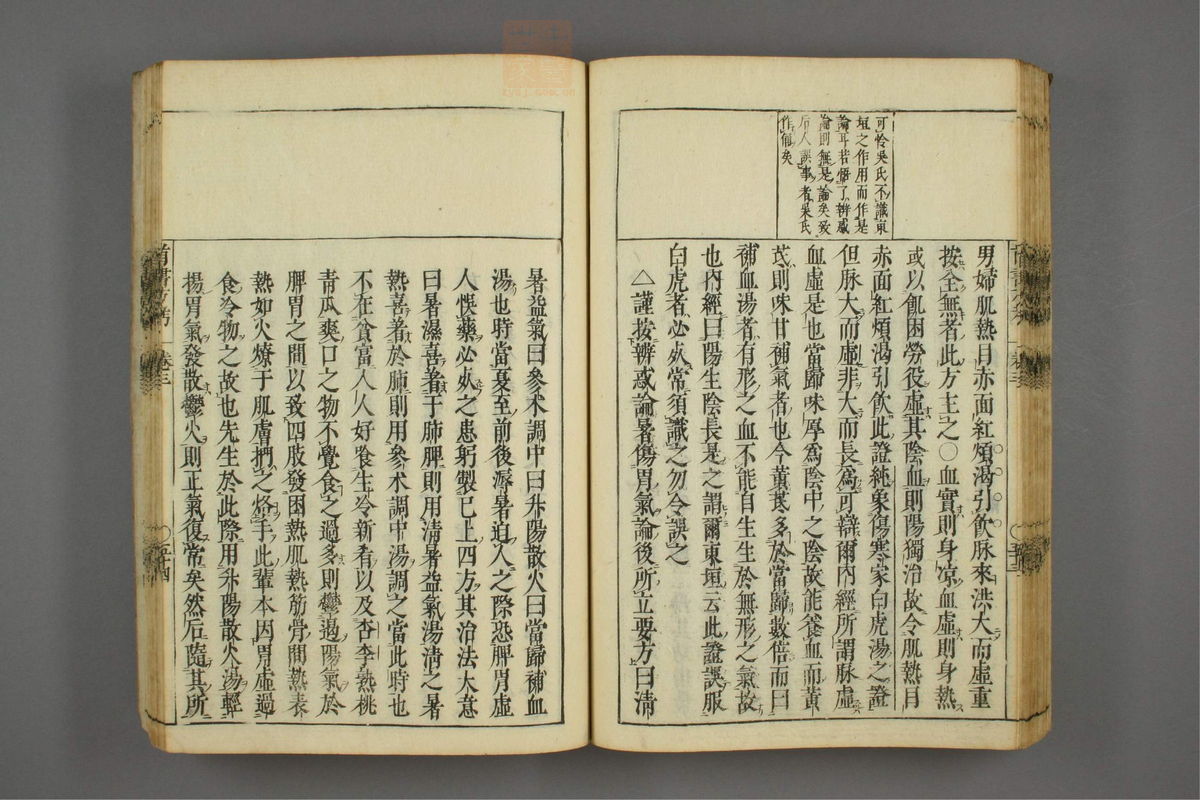 可怜吳氏不識東
垣之作用而作是
論耳若悟了辨惑
論則無是論矣致
后人誤事者吳氏
作俑矣
男婦肌熱目赤面紅煩渴引飲脉來洪大而虛重
按全無者此方主之○血實則身凉血虛則身熱
或以飢困勞役虛其陰血則陽獨治故令肌熱目
赤面紅煩渴引飲此證純象傷寒家白虎湯之證
但脉大而虛非大而長爲可辯爾內經所謂脉虛
血虛是也當歸味厚爲陰中之陰故能養血而黃
芪則味甘補氣者也今黃芪多於當歸數倍而曰
補血湯者有形之血不能自生生於無形之氣故
也內經曰陽生陰長是之謂爾東垣云此證誤服
白虎者必㱕常須識之勿令誤之
△謹按辨惑論暑傷胃氣論後所立要方曰清
暑益氣曰參术調中曰升陽散火曰當歸補血
湯也時當夏至前後溽暑迫人之際恐脾胃虛
人悞藥必㱕之患躬製已上四方其治法大意
曰暑濕喜著于肺脾則用清暑益氣湯清之暑
熱喜著於肺則用參术調中湯調之當此時也
不在貧富人人好飡生冷新肴以及杏李熟桃
青瓜爽口之物不覺食之過多則鬱遏陽氣於
脾胃之間以致四肢發困熱肌熱筋骨間熱表
熱如火燎于肌膚捫之烙手此輩本因胃虛過
食冷物之故也先生於此際用升陽散火湯輕
揚胃氣發散鬱火則正氣復常矣然后隨其所
卷三